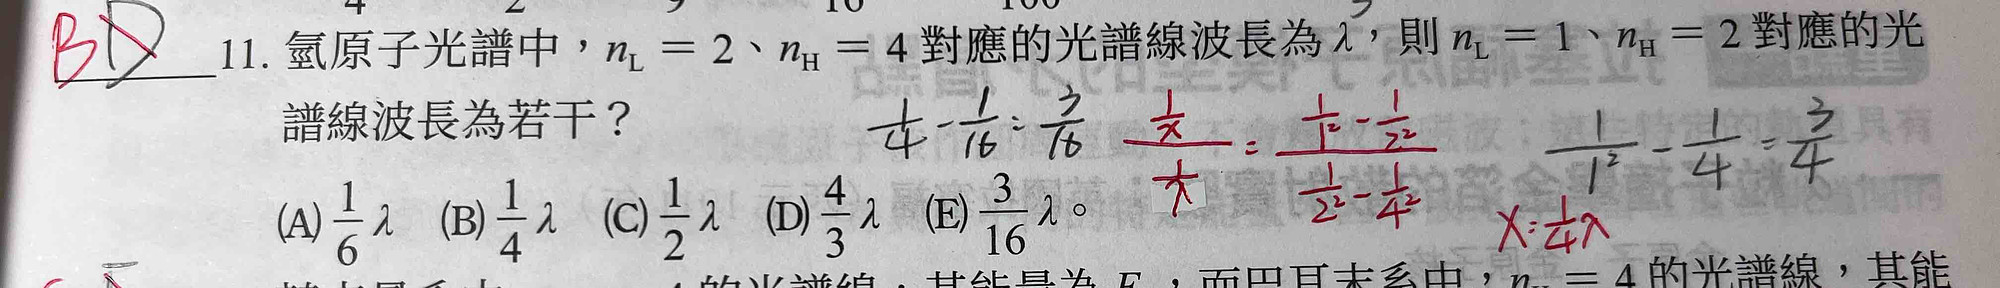 BD 11. 氫原子光譜中，n_L = 2、n_H = 4 對應的光譜線波長為 λ，則 n_L = 1、n_H = 2 對應的光
譜線波長為若干？
1/4 - 1/16 = 3/16
(1/x)/(1/λ) = (1/1² - 1/2²)/(1/2² - 1/4²)
1/1² - 1/4 = 3/4
x = 1/4 λ
(A) 1/6 λ (B) 1/4 λ (C) 1/2 λ (D) 4/3 λ (E) 3/16 λ。
4 的光譜線，其能量為 E，而巴耳末系中，n_H = 4 的光譜線，其能